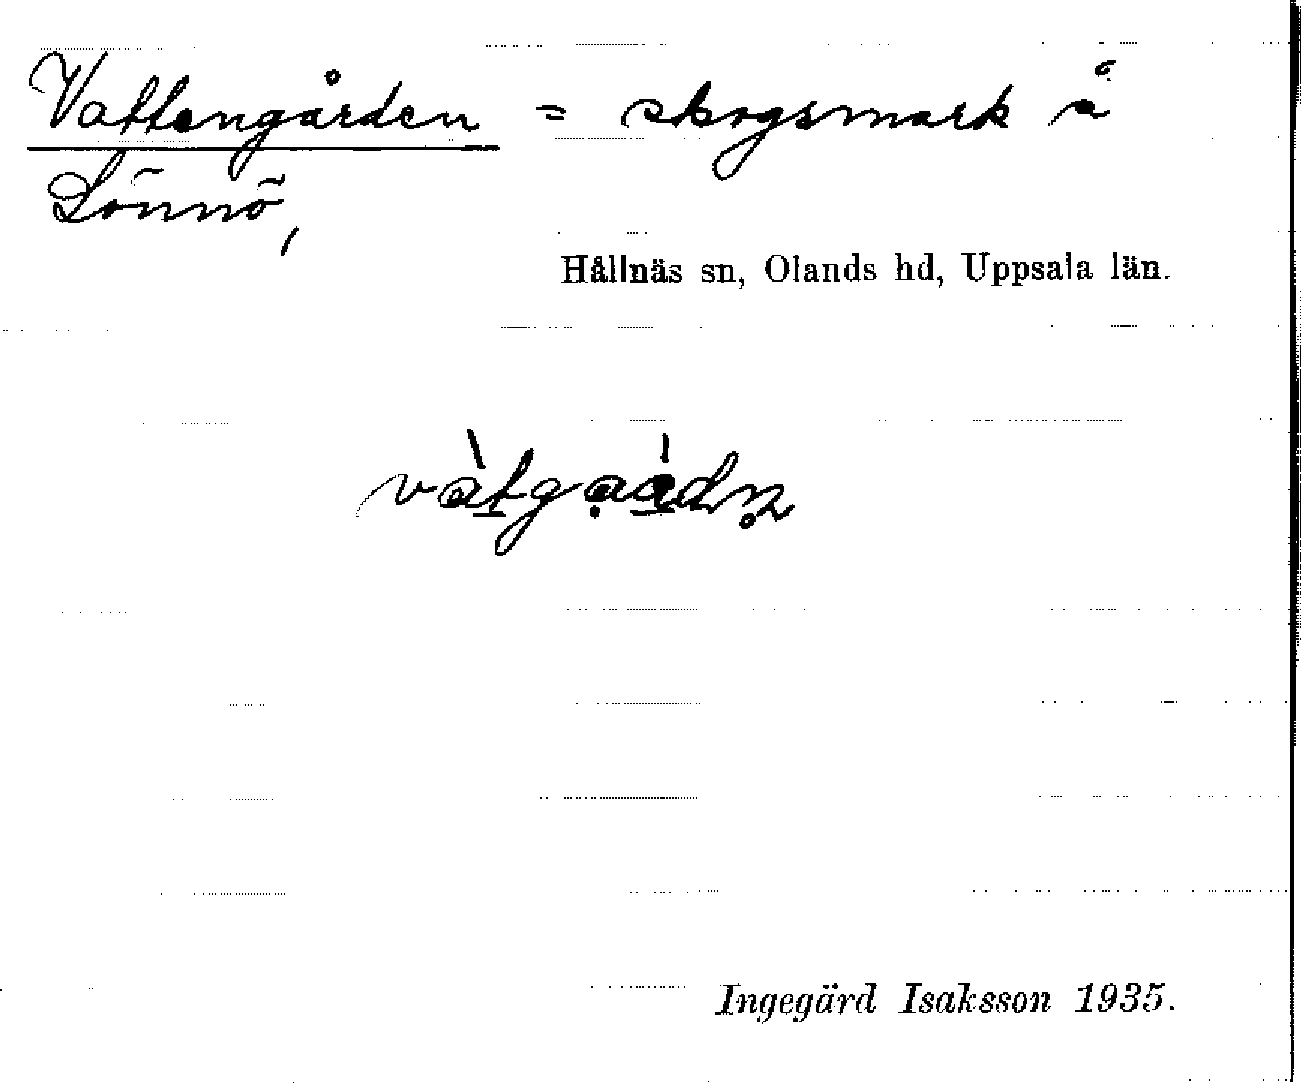 Vattengården = skogsmark å
Lönnö,
Hållnäs sn, Olands hd, Uppsala län.
Ingegärd Isaksson 1935.